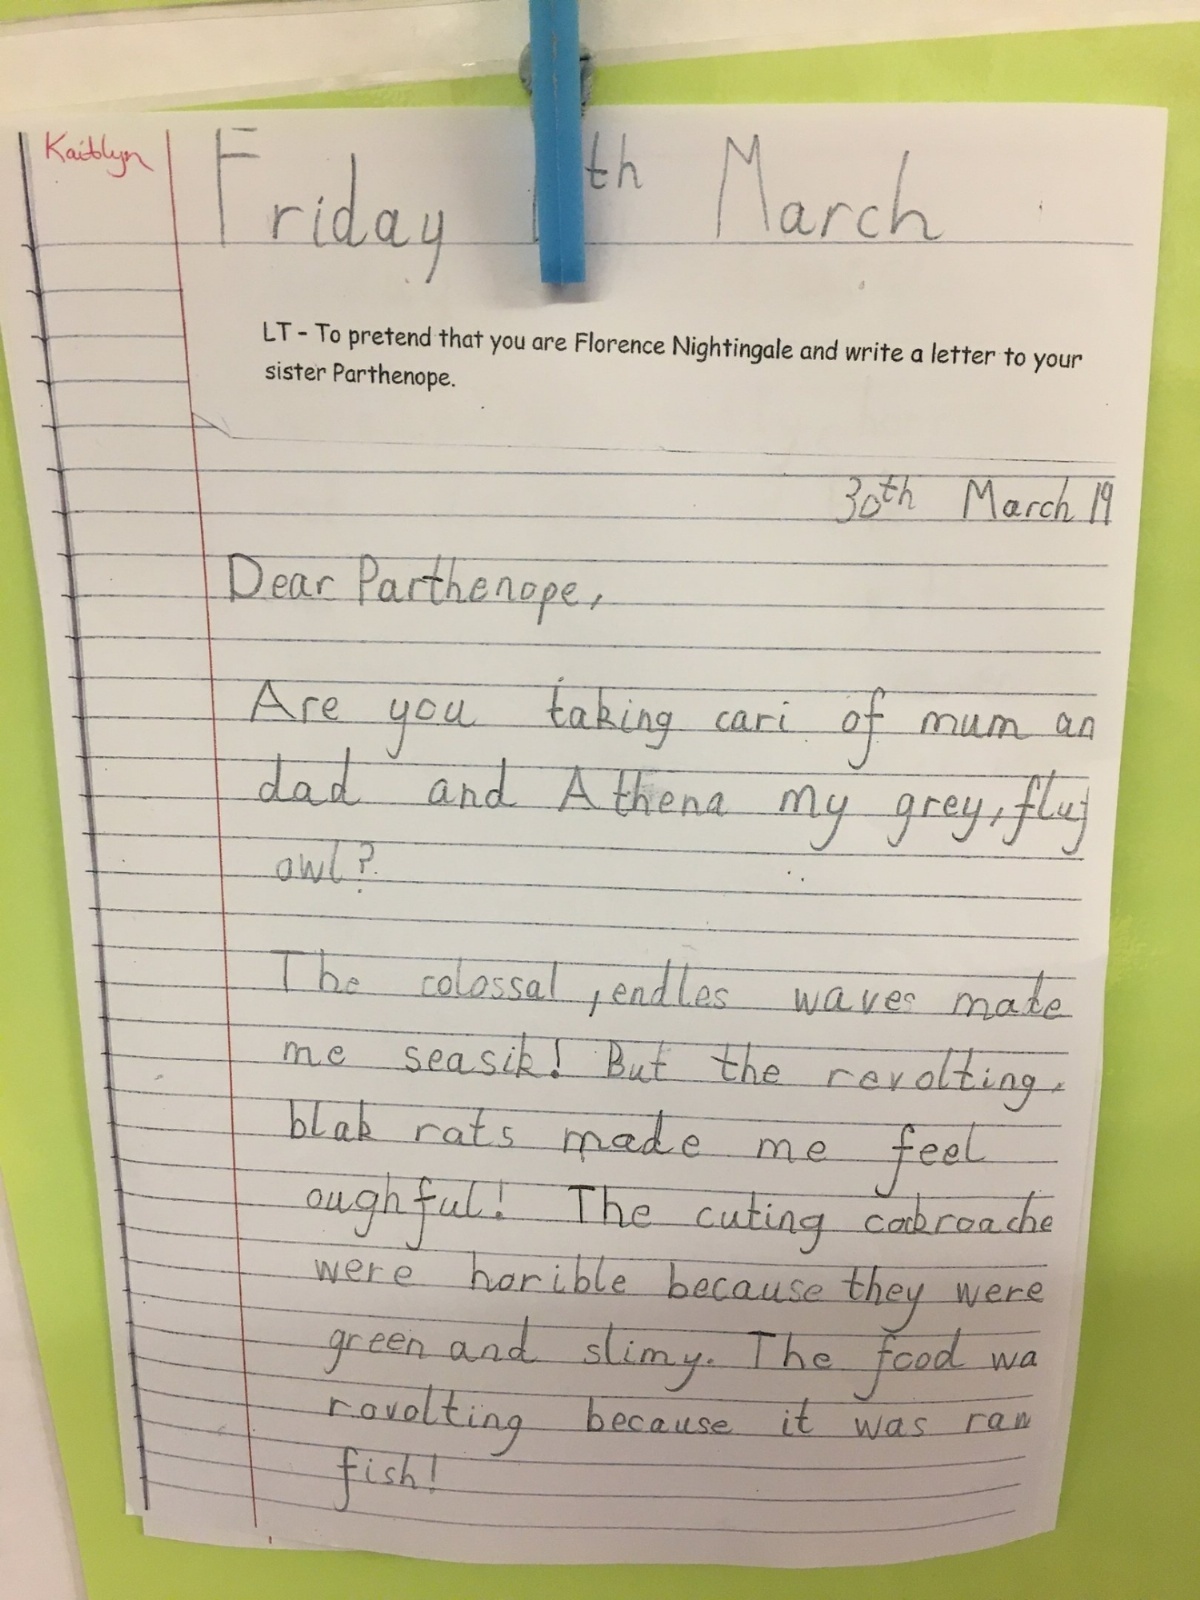 Kaitlyn
Friday th March
LT - To pretend that you are Florence Nightingale and write a letter to your
sister Parthenope.
30th March 19
Dear Parthenope,
Are you taking cari of mum an
dad and Athena my grey, fluf
owl?
The colossal , endles waves made
me seasik! But the revolting,
blak rats made me feel
oughful! The cuting cockroache
were horible because they were
green and slimy. The food wa
rovolting because it was raw
fish!